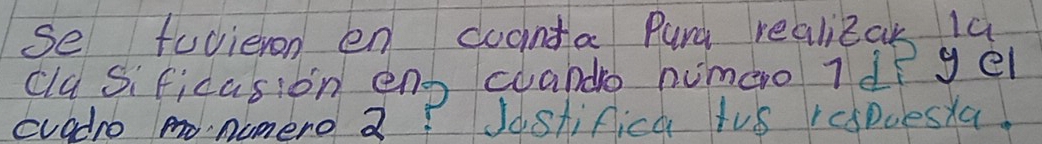 Se tuvieron en cuanta Para realizar la
cla sificasión en? cuandro número 1 d? y el
cuadro no. numero 2? Jostifica tus respuesta.